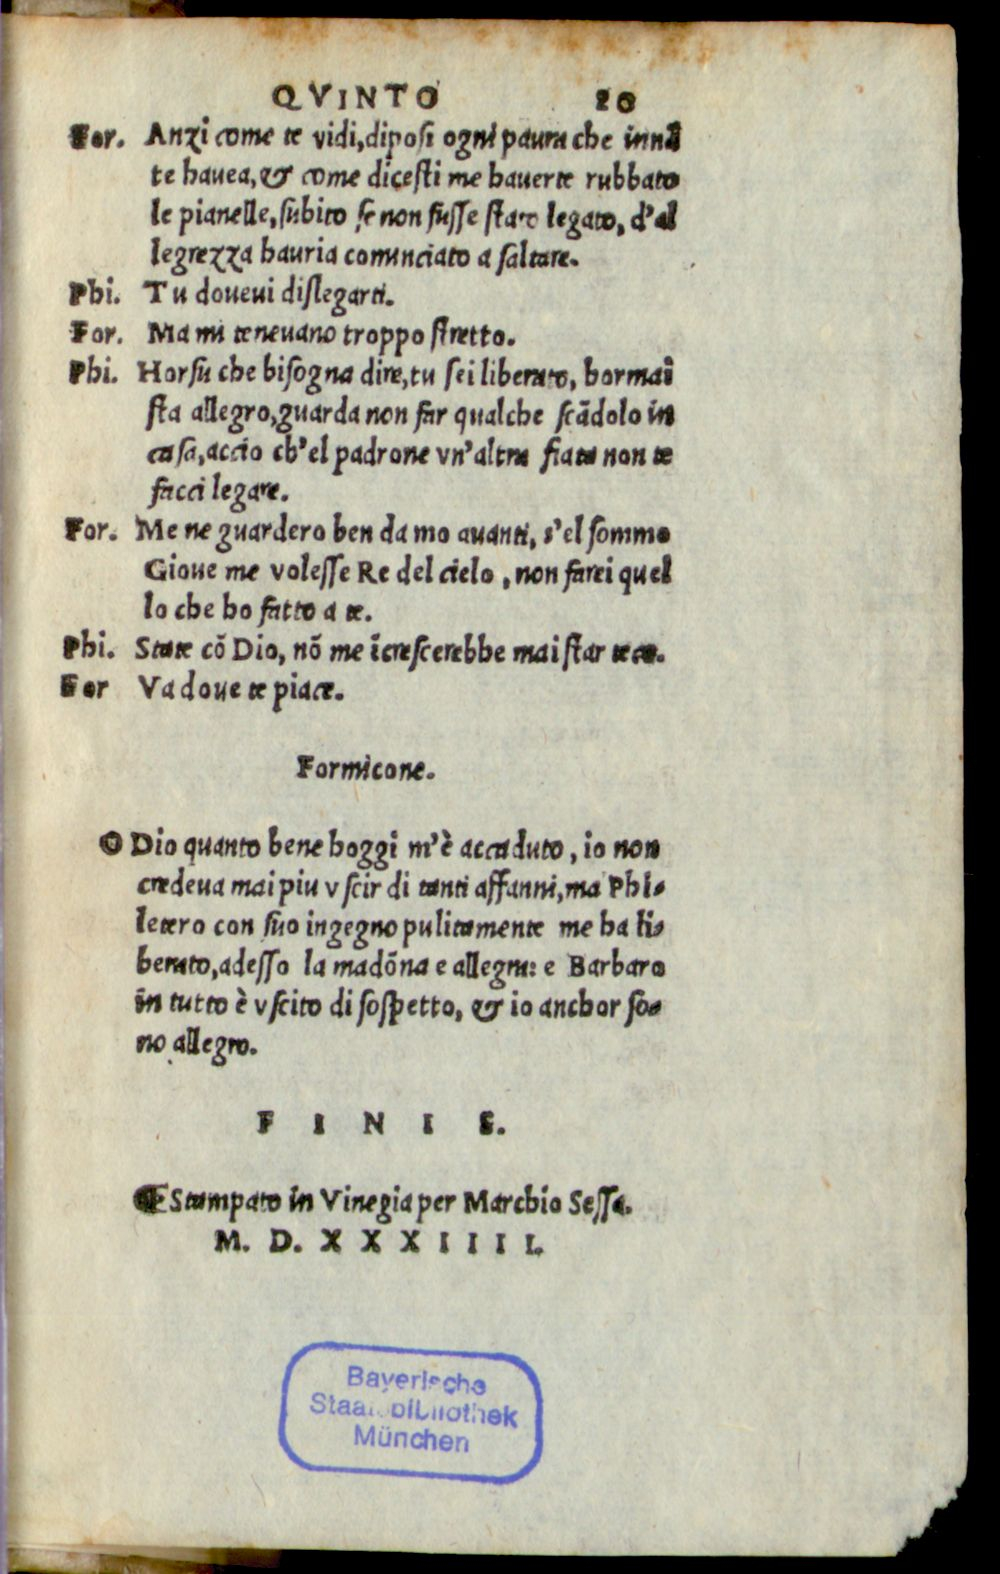 QVINTO 20
For. Anzi come te vidi, diposi ogni paura che innã
te hauea, & come dicesti me hauerte rubbato
le pianelle, subito se non fusse stato legato, d'al
legrezza hauria comnciato a saltare.
Phi. Tu doueui dislegarti.
For. Ma mi teneuano troppo stretto.
Phi. Horsu che bisogna dire, tu sei liberato, hormai
sta allegro, guarda non far qualche scãdolo in
casa, accio ch'el padrone vn'altra fiata non te
facci legare.
For. Me ne guardero ben da mo auanti, s'el sommo
Gioue me volesse Re del cielo, non farei quel
lo che ho fatto a te.
Phi. State cõ Dio, nõ me ĩcrescerebbe mai star teco.
For Va doue te piace.
Formicone.
O Dio quanto bene hoggi m'è accaduto, io non
credeua mai piu vscir di tanti affanni, ma Phi-
letero con suo ingegno pulitamente me ha li-
berato, adesso la madõna e allegra: e Barbaro
in tutto è vscito di sospetto, & io anchor so-
no allegro.
F I N I S.
Stampato in Vinegia per Marchio Sessa.
M. D. X X X I I I I.
Bayerische
Staatsbibliothek
München